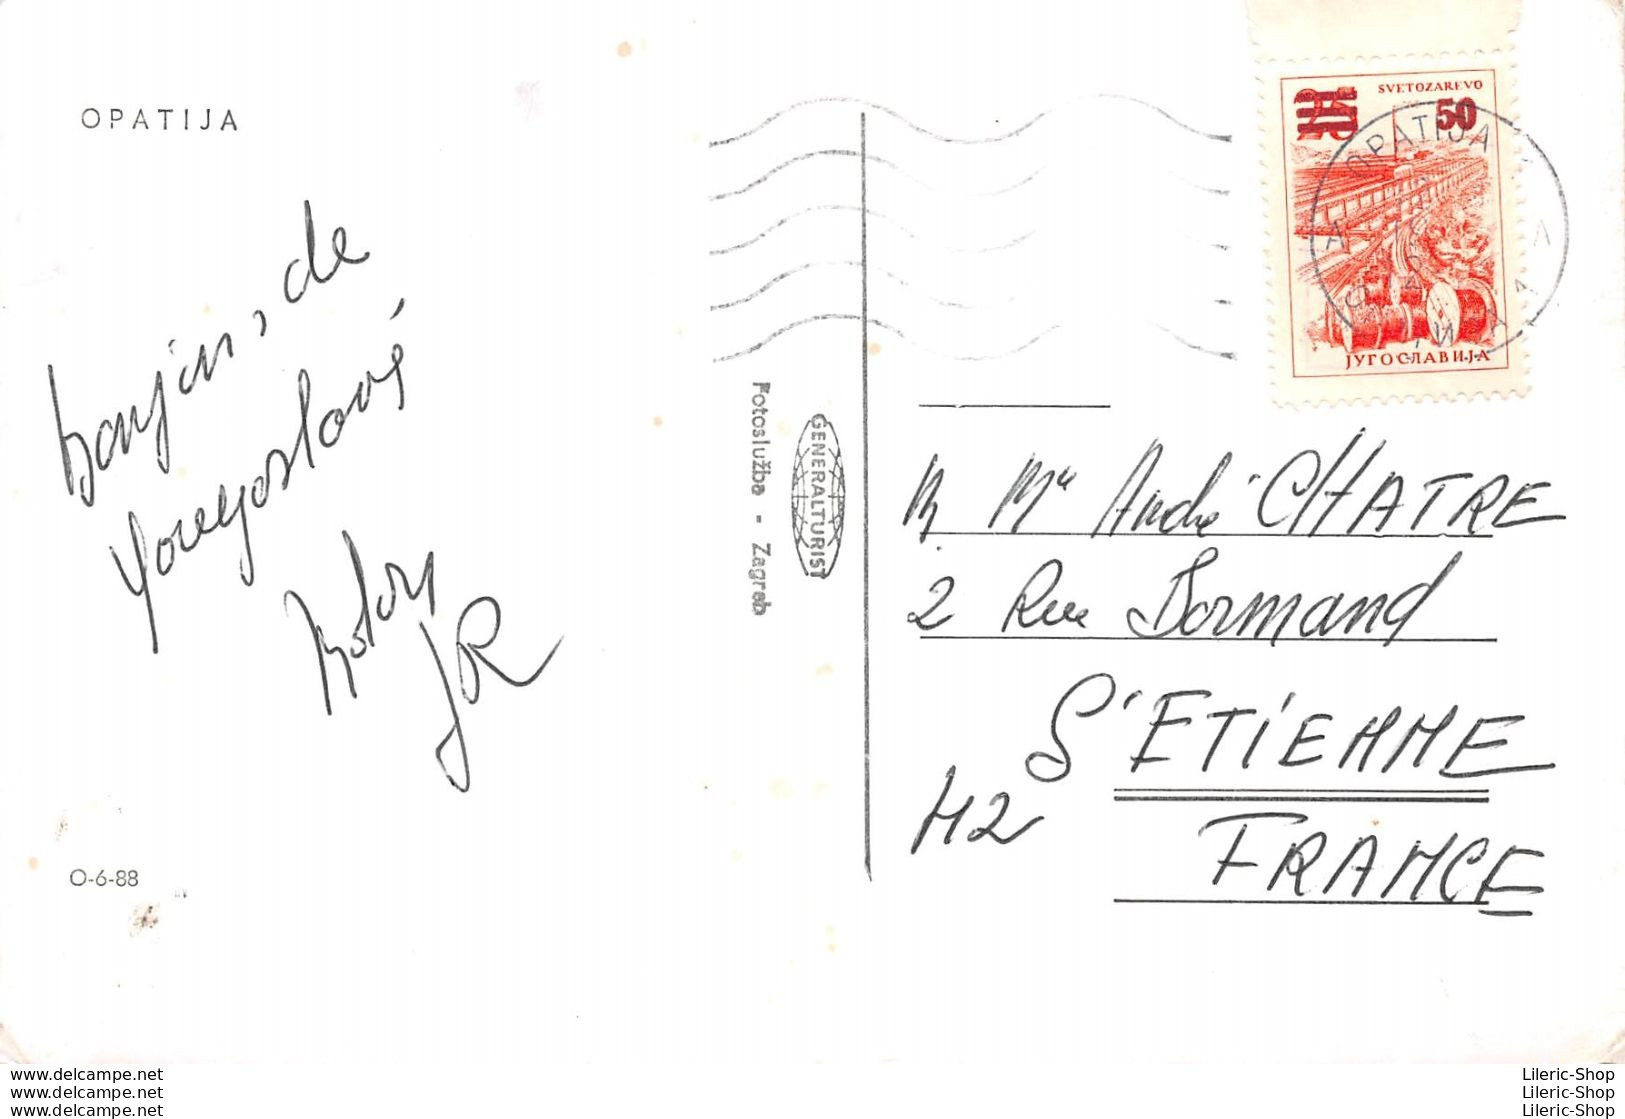 OPATIJA
bonjour, de
Yougoslavie
JR
O-6-88
Fotoslužba - Zagreb
GENERALTURIST
SVETOZAREVO
50
OPATIJA
ЈУГОСЛАВИЈА
M Me André CHATRE
2 Rue Dormand
St ETIENNE
42
FRANCE
www.delcampe.net
www.delcampe.net
www.delcampe.net
Lileric-Shop
Lileric-Shop
Lileric-Shop